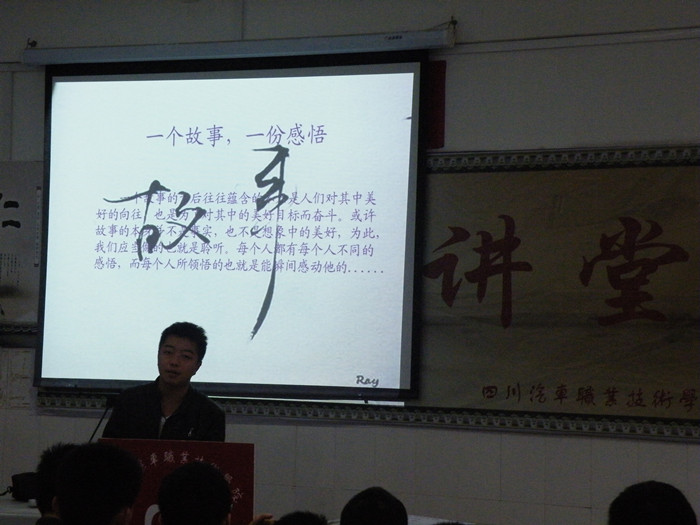 一个故事，一份感悟
故事
一个故事的 后往往蕴含的 是人们对其中美
好的向往，也是为 对其中的美好目标而奋斗。或许
故事的本 不 事实，也不 想象中的美好，为此，
我们应当 的 就是聆听。每个人都有每个人不同的
感悟，而每个人所领悟的也就是能瞬间感动他的......
Ray
讲堂
四川汽车職業技術學
车職業技術學院
仁